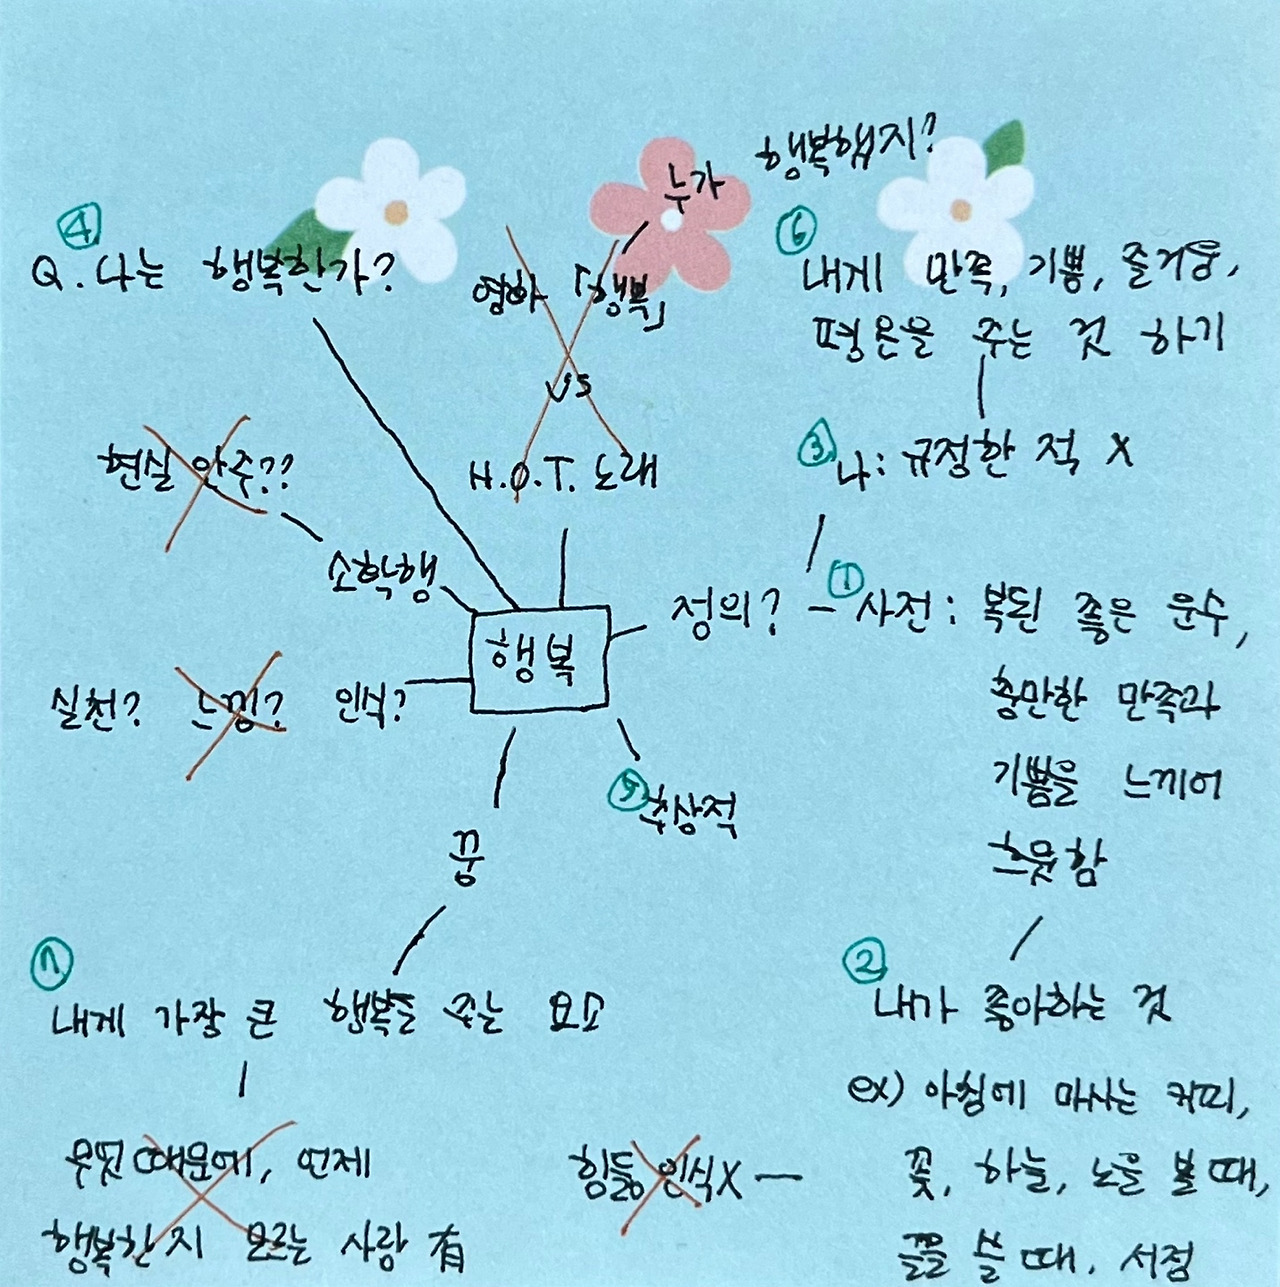 행복했지?
누가
④
Q. 나는 행복한가?
영화 「행복」
VS
H.O.T. 노래
⑥
내게 만족, 기쁨, 즐거움,
평온을 주는 것 하기
③
나: 규정한 적 X
현실 안주??
소확행
행복
정의? - ① 사전: 복된 좋은 운수,
충만한 만족과
기쁨을 느끼어
흐뭇함
실천? 느낌? 인식?
⑤ 추상적
꿈
⑦
내게 가장 큰 행복을 주는 요소
무엇 때문에, 언제
행복한지 모르는 사람 有
②
내가 좋아하는 것
ex) 아침에 마시는 커피,
꽃, 하늘, 노을 볼 때,
글을 쓸 때, 서점
힘듦 인식X